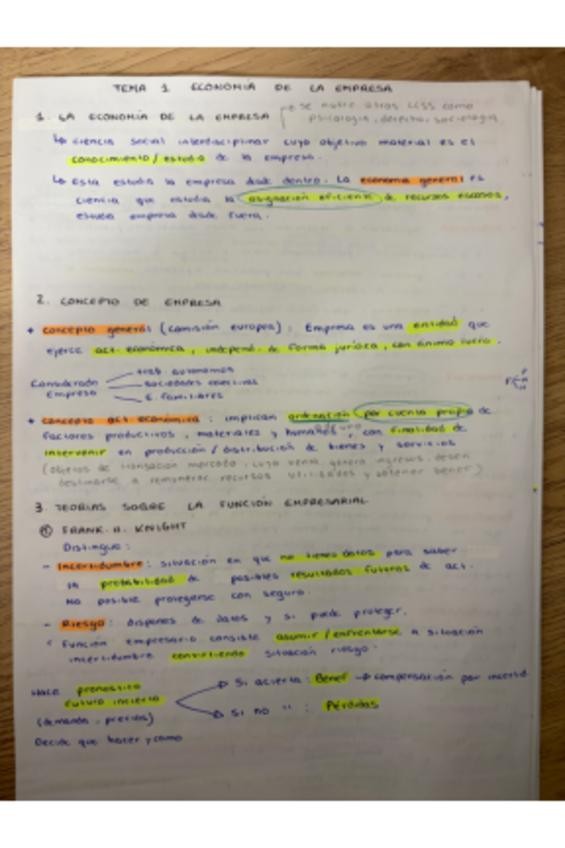 TEMA 1. ECONOMIA DE LA EMPRESA
1. LA ECONOMIA DE LA EMPRESA → se nutre otras CCSS como
psicologia, derecho, sociologia
↳ ciencia social interdisciplinar cuyo objetivo material es el
conocimiento / estudio de la empresa.
↳ Esta estudia la empresa desde dentro. La economia general es
ciencia que estudia la asignación eficiente de recursos escasos,
estudia empresa desde fuera.
2. CONCEPTO DE EMPRESA
+ concepto general (comisión europea): Empresa es una entidad que
ejerce act. económica, independ. de forma jurídica, con ánimo lucro.
Considerado
Empresa
trab. autonomos
sociedades colectivas
E. familiares
+ concepto act económica: implican ordenación por cuenta propia de
factores productivos, materiales y humanos, con finalidad de
intervenir en producción / distribución de bienes y servicios
(objetos de transación mercado, cuya venta genera ingresos, deben
destinarse a remunerar recursos utilizados y obtener benef)
3. TEORIAS SOBRE LA FUNCIÓN EMPRESARIAL
① FRANK. H. KNIGHT
Distingue:
- Incertidumbre: situación en que no tienes datos para saber
la probabilidad de posibles resultados futuros de act.
No posible protegerse con seguro.
- Riesgo: dispones de datos y si puede proteger.
Función empresario consiste asumir / enfrentarse a situación
incertidumbre convirtiendo situación riesgo.
Hace pronostico
futuro incierto
(demanda, precios)
Decide que hacer y como
→ Si acierta: Benef → compensación por incertid.
→ Si no " : Pérdidas